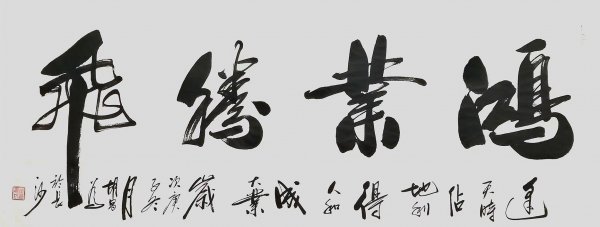 鸿業騰飛
逢天時占地利得人和成大業歲次庚
月
於長沙